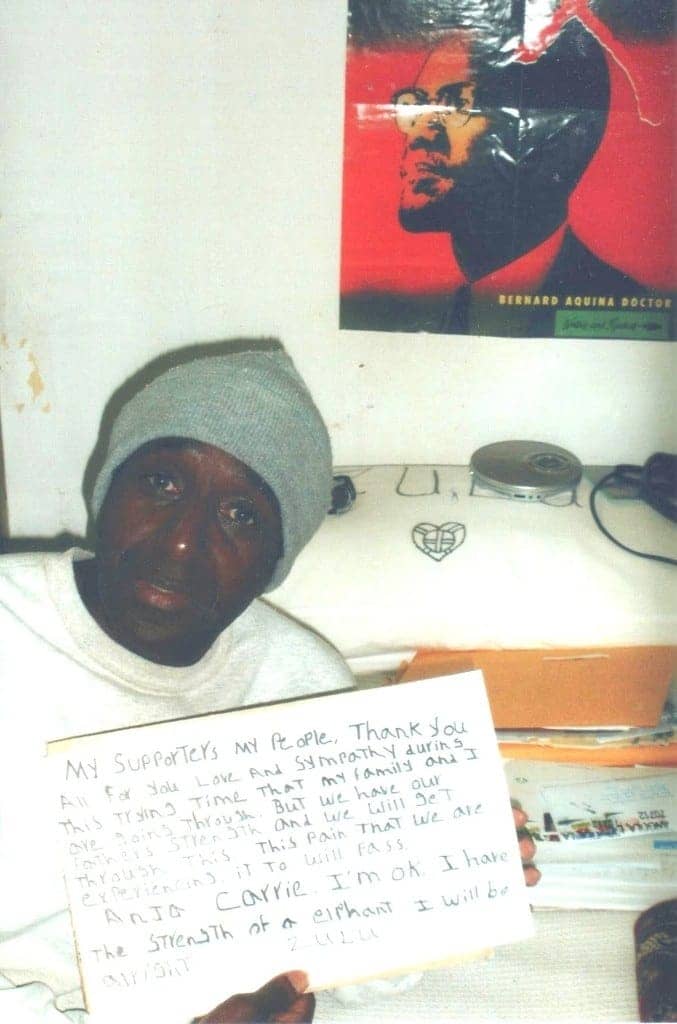 BERNARD AQUINA DOCTOR
My Supporters My People, Thank you
All For you Love And Sympathy during
This trying Time That my family and I
are going Through. But we have our
Fathers Strength and we will get
Through This. This Pain That we are
experiencing, it To will Pass.
Anja Carrie. I'm ok. I have
The Strength of a elephant I will be
alright
ZULU
70712